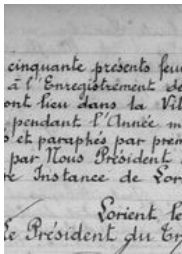 cinquante présents feu
à l'Enregistrement de
ont lieu dans la Vil
pendant l'Année m
s et paraphés par prem
par Nous Président
re Instance de Lor
Lorient le
Le Président du Tr